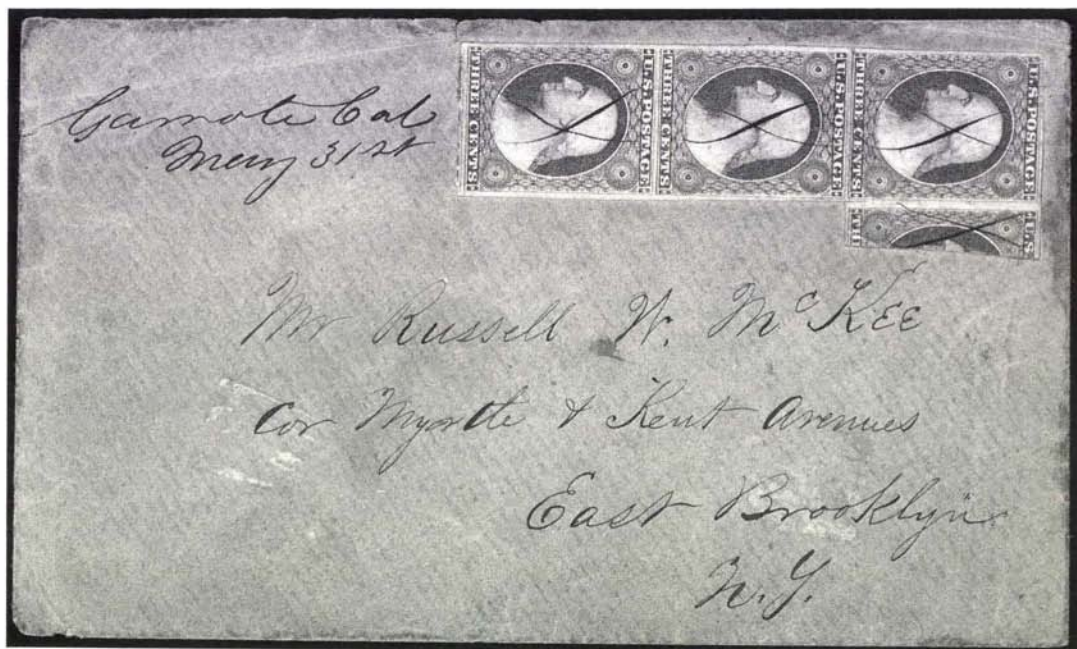 Garrote Cal
May 31st
U.S. POSTAGE
THREE CENTS
U.S. POSTAGE
THREE CENTS
U.S. POSTAGE
THREE CENTS
U.S
THR
Mr Russell W. McKee
Cor Myrtle & Kent Avenues
East Brooklyn
N.Y.